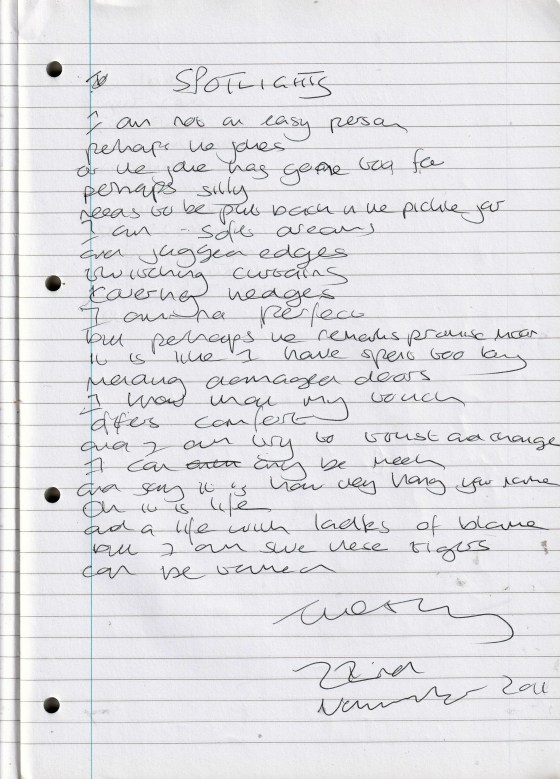 SPOTLIGHTS
I am not an easy person
perhaps the jokes
or the joke has gone too far
perhaps silly
needs to be put back in the pickle jar
I am soft dreams
and jagged edges
twitching curtains
towering hedges
I am no perfect
but perhaps the remarks promise more
it is like I have spent too long
mending damaged doors
I know that my touch
offers comfort
and I am try to trust and change
I can only be meek
and say it is how they hang your name
Oh it is life
and a life with ladles of blame
but I am sure these lights
can be turned
22nd
November 2011